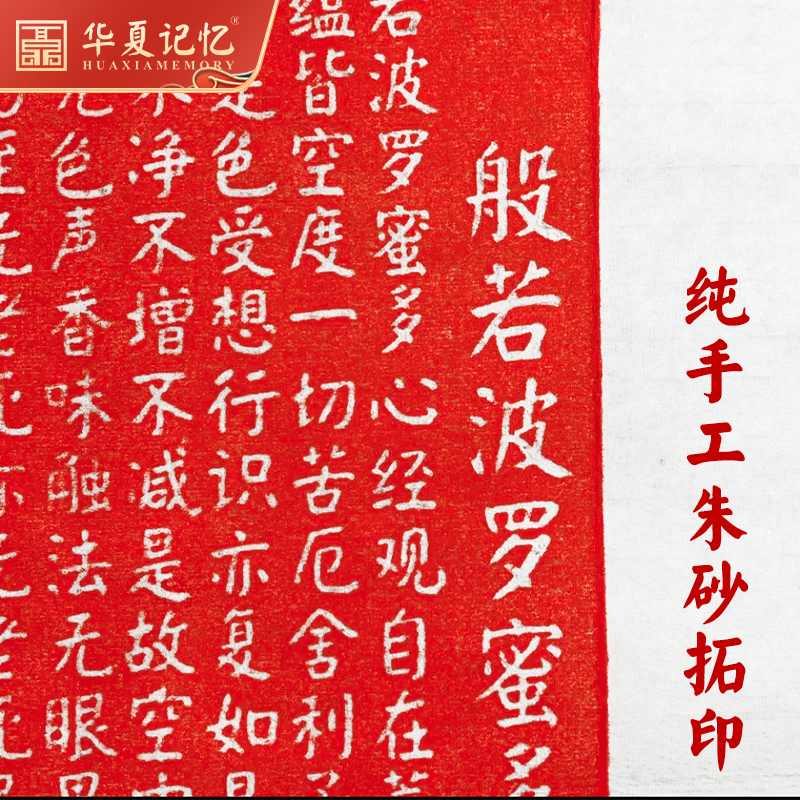 华夏记忆®
HUAXIAMEMORY
纯手工朱砂拓印
般若波罗蜜多
若波罗蜜多心经观自在菩
蕴皆空度一切苦厄舍利子
是色受想行识亦复如是
不净不增不减是故空中
无色声香味触法无眼界